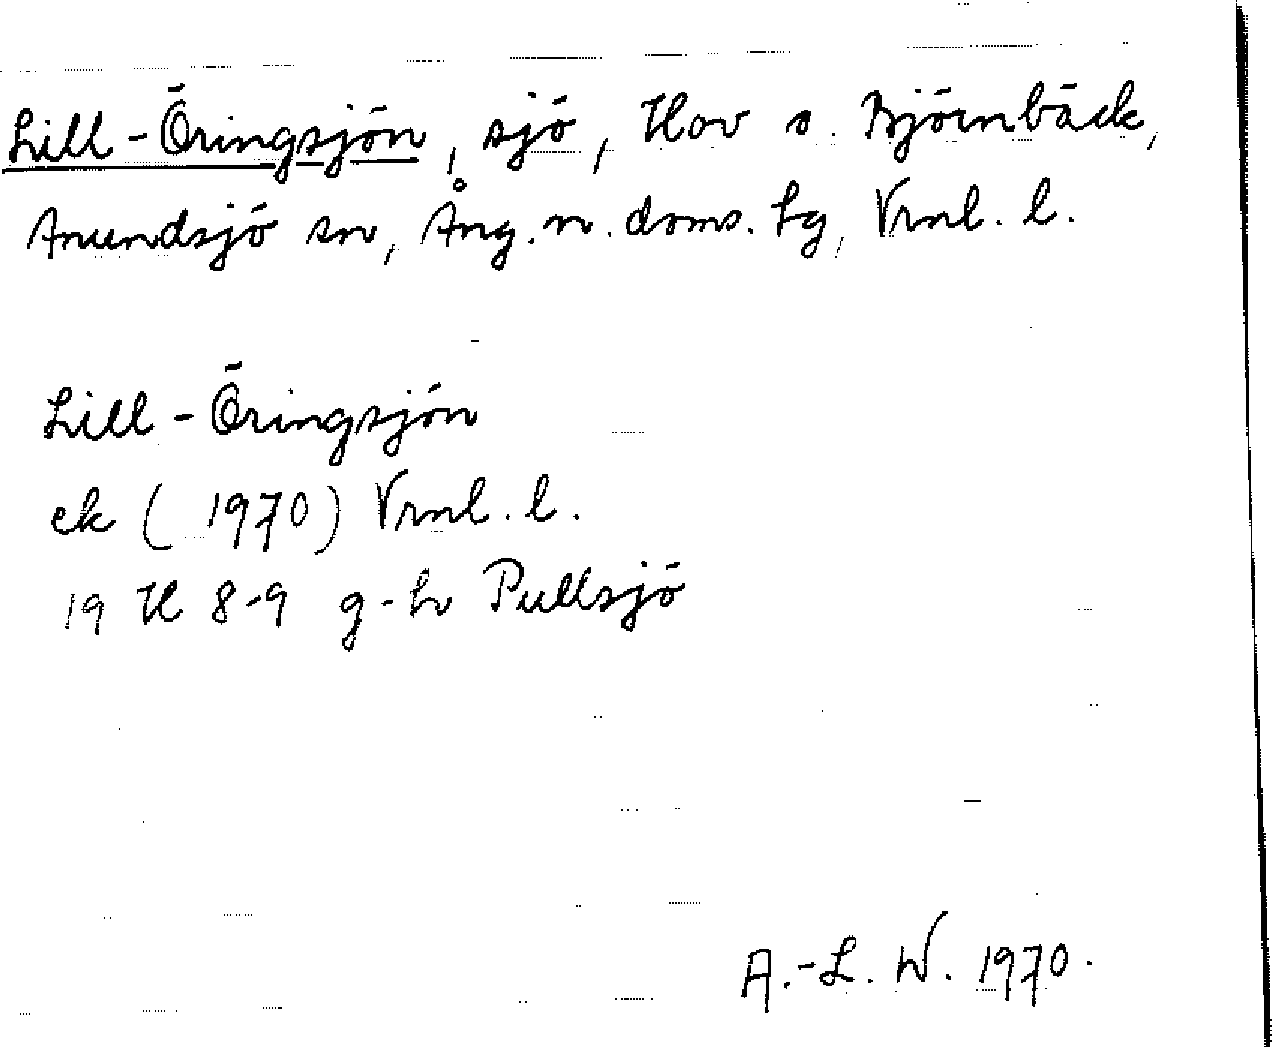 Lill-Öringsjön, sjö, Hov o. Björnbäck,
Anundsjö sn, Ång. n. doms. hg, Vrnl. l.
Lill-Öringsjön
ek (1970) Vrnl. l.
19 H 8-9 g-h Pullsjö
A.-L. W. 1970.